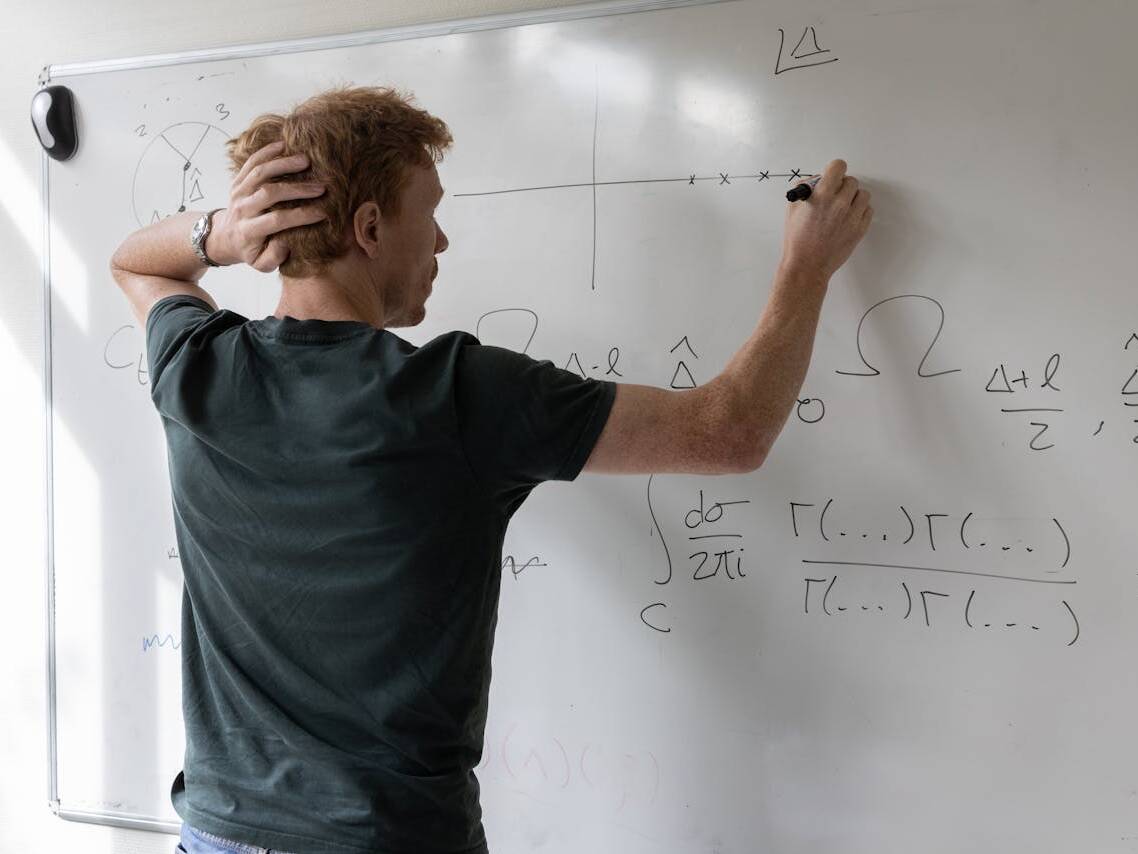 ∆
2 3
Δ̂
C
Ω Δ-l Δ̂ Ω Δ+l/2 , Δ̂/2
∫_C dσ/2πi Γ(...)Γ(...)/Γ(...)Γ(...)